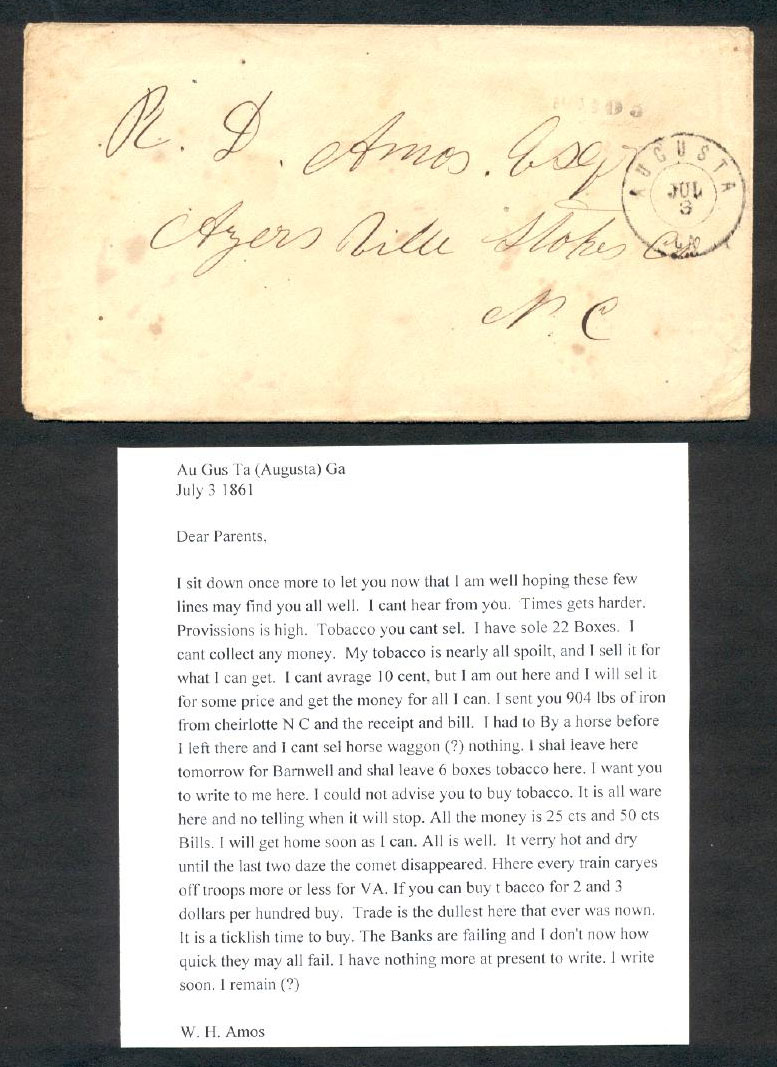 R. D. Amos. Esqr
Ayersville Stokes Co
N. C
AUGUSTA
JUL
3
Au Gus Ta (Augusta) Ga
July 3 1861
Dear Parents,
I sit down once more to let you now that I am well hoping these few
lines may find you all well. I cant hear from you. Times gets harder.
Provissions is high. Tobacco you cant sel. I have sole 22 Boxes. I
cant collect any money. My tobacco is nearly all spoilt, and I sell it for
what I can get. I cant avrage 10 cent, but I am out here and I will sel it
for some price and get the money for all I can. I sent you 904 lbs of iron
from cheirlotte N C and the receipt and bill. I had to By a horse before
I left there and I cant sel horse waggon (?) nothing. I shal leave here
tomorrow for Barnwell and shal leave 6 boxes tobacco here. I want you
to write to me here. I could not advise you to buy tobacco. It is all ware
here and no telling when it will stop. All the money is 25 cts and 50 cts
Bills. I will get home soon as I can. All is well. It verry hot and dry
until the last two daze the comet disappeared. Hhere every train caryes
off troops more or less for VA. If you can buy t bacco for 2 and 3
dollars per hundred buy. Trade is the dullest here that ever was nown.
It is a ticklish time to buy. The Banks are failing and I don't now how
quick they may all fail. I have nothing more at present to write. I write
soon. I remain (?)
W. H. Amos